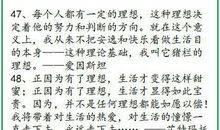 47、每个人都有一定的理想，这种理想决
定着他的努力和判断的方向。就在这个意
义上，我从来不把安逸和快乐看做生活目
的本身——这种理论基础，我叫它猪栏的
理想。——爱因斯坦
48、正因为有了理想，生活才变得这样甜
蜜；正因为有了理想，生活才显得如此宝
贵。因为，并不是任何理想都能如愿以偿！
我将带着对生活的热爱，对生活的憧憬一